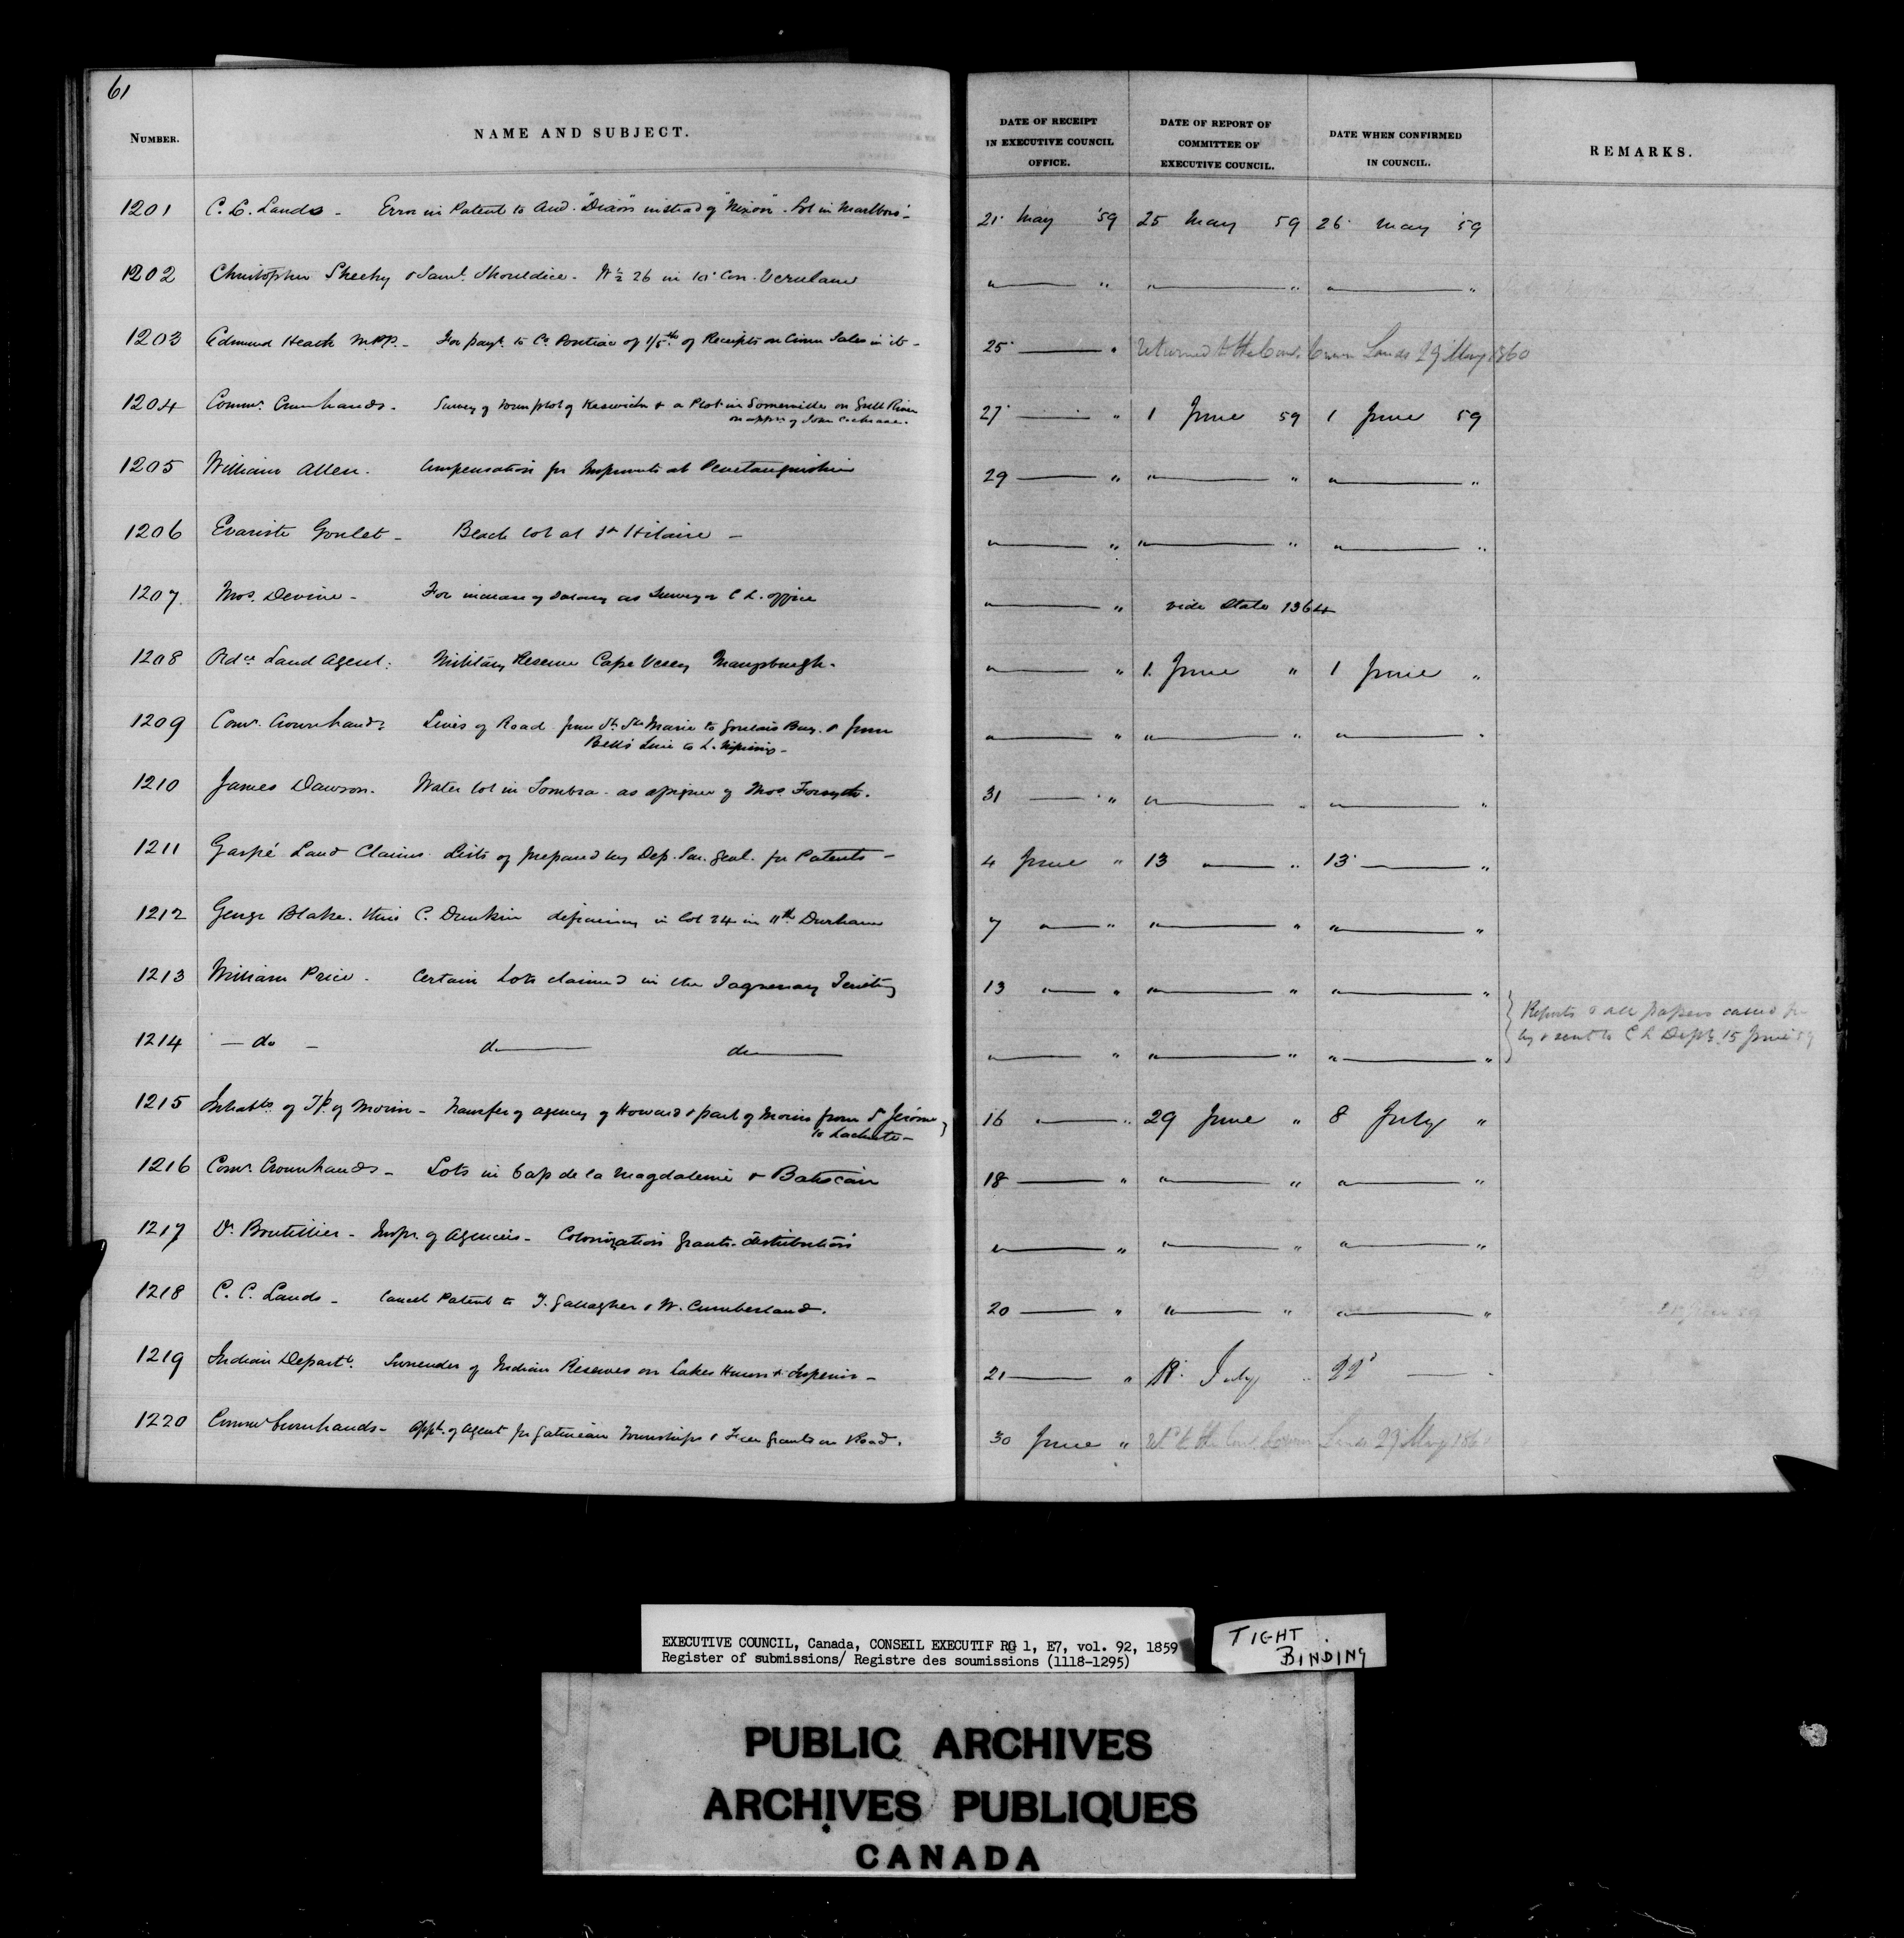 61
NUMBER. NAME AND SUBJECT. DATE OF RECEIPT IN EXECUTIVE COUNCIL OFFICE. DATE OF REPORT OF COMMITTEE OF EXECUTIVE COUNCIL. DATE WHEN CONFIRMED IN COUNCIL. REMARKS.
1201 C. C. Lands - Error in Patent to And. "Dixon" instead of "Nixon". Lot in Marlboro'- 21 May '59 25 May 59 26 May '59
1202 Christopher Sheehy & Saml. Shouldice - W ½ 26 in 10 Con. Verulam " " " " " "
1203 Edmund Heath M.P.P. - For payt. to Co. Pontiac of 1/5th of Receipts on Crown Sales in it - 25 " Returned to the Comr. Crown Lands 29 May 1860
1204 Commr. Crown Lands - Survey of Town plot of Keswick & a Plot in Somerville on Gull River 27 " 1 June 59 1 June 59
on appn. of John Cochrane.
1205 William Allen. Compensation for Improvmts at Penetanguishine 29 " " " " "
1206 Evariste Goulet - Beach lot at St Hilaire - " " " " " "
1207 Thos. Devine - For increase of Salary as Surveyor C L. office " " vide State 1364
1208 Ordce Land Agent. Military Reserve Cape Vesey Marysburgh. " " 1. June " 1 June "
1209 Comr. Crown Lands Lines of Road from St. Ste Marie to Goulais Bay. & from " " " " " "
Bell's Line to L. Nipissing -
1210 James Dawson. Water lot in Sombra - as assignee of Thos. Forsyth. 31 " " " " "
1211 Gaspé Land Claims. Lists of prepared by Dep. Sur. Genl. for Patents - 4 June " 13 " " 13 "
1212 George Blake. thro' C. Dunkin deficiency in lot 24 in 11th Durham 7 " " " " " "
1213 William Price. Certain Lots claimed in the Saguenay Territy 13 " " " " " "
1214 - do - do do " " " " " "
Reports & all papers called for
by & sent to C L Dept. 15 June 59
1215 Inhabts of Tp. of Morin - Transfer of agency of Howard & part of Morin from St Jérôme 16 " 29 June " 8 July "
to Lachute -
1216 Comr. Crown Lands - Lots in Cap de la Magdaleine & Batiscan 18 " " " " "
1217 Dr. Boutillier - Inspr. of Agencies - Colonization grants - distribution " " " " " "
1218 C. C. Lands - Cancel Patent to T. Gallagher & W. Cumberland. 20 " " " " "
1219 Indian Departt. Surrender of Indian Reserves on Lakes Huron & Superior - 21 " July 22d
1220 Commr Crown Lands - Appt. of Agent for Gatineau Townships & Free Grants on Road. 30 June " Rd to the Comr. Crown Lands 29 May 1860
EXECUTIVE COUNCIL, Canada, CONSEIL EXECUTIF RG 1, E7, vol. 92, 1859
Register of submissions/ Registre des soumissions (1118-1295)
TIGHT
BINDING
PUBLIC ARCHIVES
ARCHIVES PUBLIQUES
CANADA